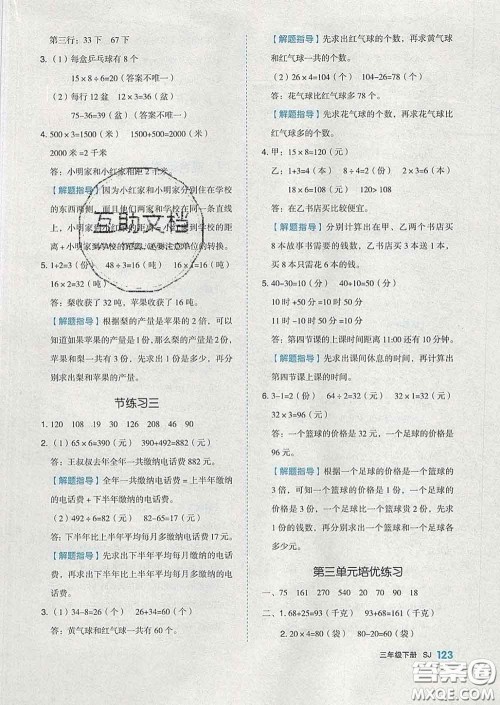 第三行：33 下　67 下
3.（1）每盒乒乓球有 8 个
15×8÷6=20（答案不唯一）
（2）每行 12 盆　12×3=36（盆）
75-36=39（盆）（答案不唯一）
4. 500×3=1500（米）　1500+500=2000（米）
2000 米=2 千米
答：小明家和小红家相距 2 千米。
【解题指导】因为小红家和小明家分别住在学校
的东西两侧，而且他们两家和学校在同一条直线
上，小明家到小红家的距离=小红家到学校的距
离+小明家到学校的距离，还要注意单位的换算。
5. 1+2=3（份）　48÷3=16（吨）
16×2=32（吨）
答：梨收获了 32 吨，苹果收获了 16 吨。
【解题指导】根据梨的产量是苹果的 2 倍，可以
知道如果苹果的产量是 1 份，那么梨就是 2 份，
苹果和梨一共是 3 份。先求出 1 份是多少，再分
别求出梨和苹果的产量。
节练习三
1. 120　108　30　190　126　208　46　90
2.（1）65×6=390（元）　390+492=882（元）
答：王叔叔去年全年一共缴纳电话费 882 元。
【解题指导】全年一共缴纳的电话费=上半年缴纳
的电话费+下半年缴纳的电话费。
（2）492÷6=82（元）　82-65=17（元）
答：下半年比上半年平均每月多缴电话费 17 元。
【解题指导】先求出下半年平均每月缴纳的电话
费，再求出下半年比上半年平均每月多缴纳的电
话费。
3.（1）34-8=26（个）　26+34=60（个）
答：黄气球和红气球一共有 60 个。
【解题指导】先求出红气球的个数，再求黄气球
和红气球一共的个数。
（2）26×4=104（个）　104-26=78（个）
答：花气球比红气球多 78 个。
【解题指导】先求出花气球的个数，再求花气球比
红气球多的个数。
4. 甲：15×8=120（元）
乙：1+3=4（本）　8÷4=2（份）　2×3=6（本）
16×6=96（元）　120>96
答：在乙书店买比较便宜。
【解题指导】分别计算出在甲、乙两个书店买
8 本故事书需要的钱数，乙书店买 3 本送 1 本，
买 8 本只需花 6 本的钱。
5. 40-30=10（分）　10×5=50（分）
10 时+50 分=10 时 50 分
10 时 50 分+10 分=11 时
答：第四节课的上课时间距离 11:00 还有 10 分钟。
【解题指导】先求出课间休息的时间，再计算出
第四节课上课的时间。
6. 3-1=2（份）　64÷2=32（元）　32×1=32（元）
32×3=96（元）
答：一个篮球的价格是 32 元，一个足球的价格是
96 元。
【解题指导】一个足球的价格是一个篮球的价格的
3 倍，可知一个篮球的价格是 1 份，一个足球的价
格是 3 份，一个足球比一个篮球多 2 份，先求出
1 份的钱数，再分别求出一个篮球和一个足球各
多少元。
第三单元培优练习
一、75　161　270　540　20　70　90　18
二、1. 68+25=93（千克）　93+68=161（千克）
2. 20×4=80（袋）　80-20=60（袋）
三年级下册　SJ　123
互助文档
答案圈
MXQE.COM